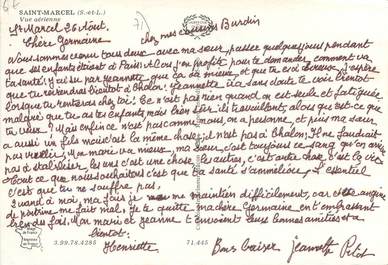 SAINT-MARCEL (S.-et-L.)
Vue aérienne
St Marcel 26 Août.
Chère Germaine
chez mes cousins Burdin
Nous sommes venu tous deux avec ma sœur, passer quelques jours pendant
que ses enfants étaient à Paris. Alors j'en profite pour te demander, comment va
ta santé. J'ai su par Jeannette que ça va mieux, et que tu J'espère
que tu reviendras bientôt à Chalon. Jeannette ira sans doute te voir bientôt
lorsque tu rentreras chez toi. Ce n'est pas rien quand on est seule et fatiguée
malgré que tu as tes enfants mais bien sûr ils travaillent, alors qu'est-ce que
tu veux? Mais enfin ce n'est pas comme nous, on a personne, et puis ma sœur
a aussi un fils mais c'est la même chose, il n'est pas à Chalon. Il ne faudrait
pas vieillir. Mon mari va mieux, ma sœur, c'est toujours ce sang qu'on arrive
pas à stabiliser, les uns c'est une chose, les autres, c'est autre chose, c'est la vie
Tout ce que nous souhaitons c'est que ta santé s'améliore. L'essentiel
c'est que tu ne souffre pas.
Quand à moi, ma fois je me maintiens difficilement, car cette angine
de poitrine me fait mal. Je te quitte ma chère Germaine en t'embrassant
bien des fois. Mon mari et Jeanne t'envoient leurs bonnes amitiés et à
bientôt.
Henriette
Bons Baisers Jeannette
3.99.78.4285
71.445